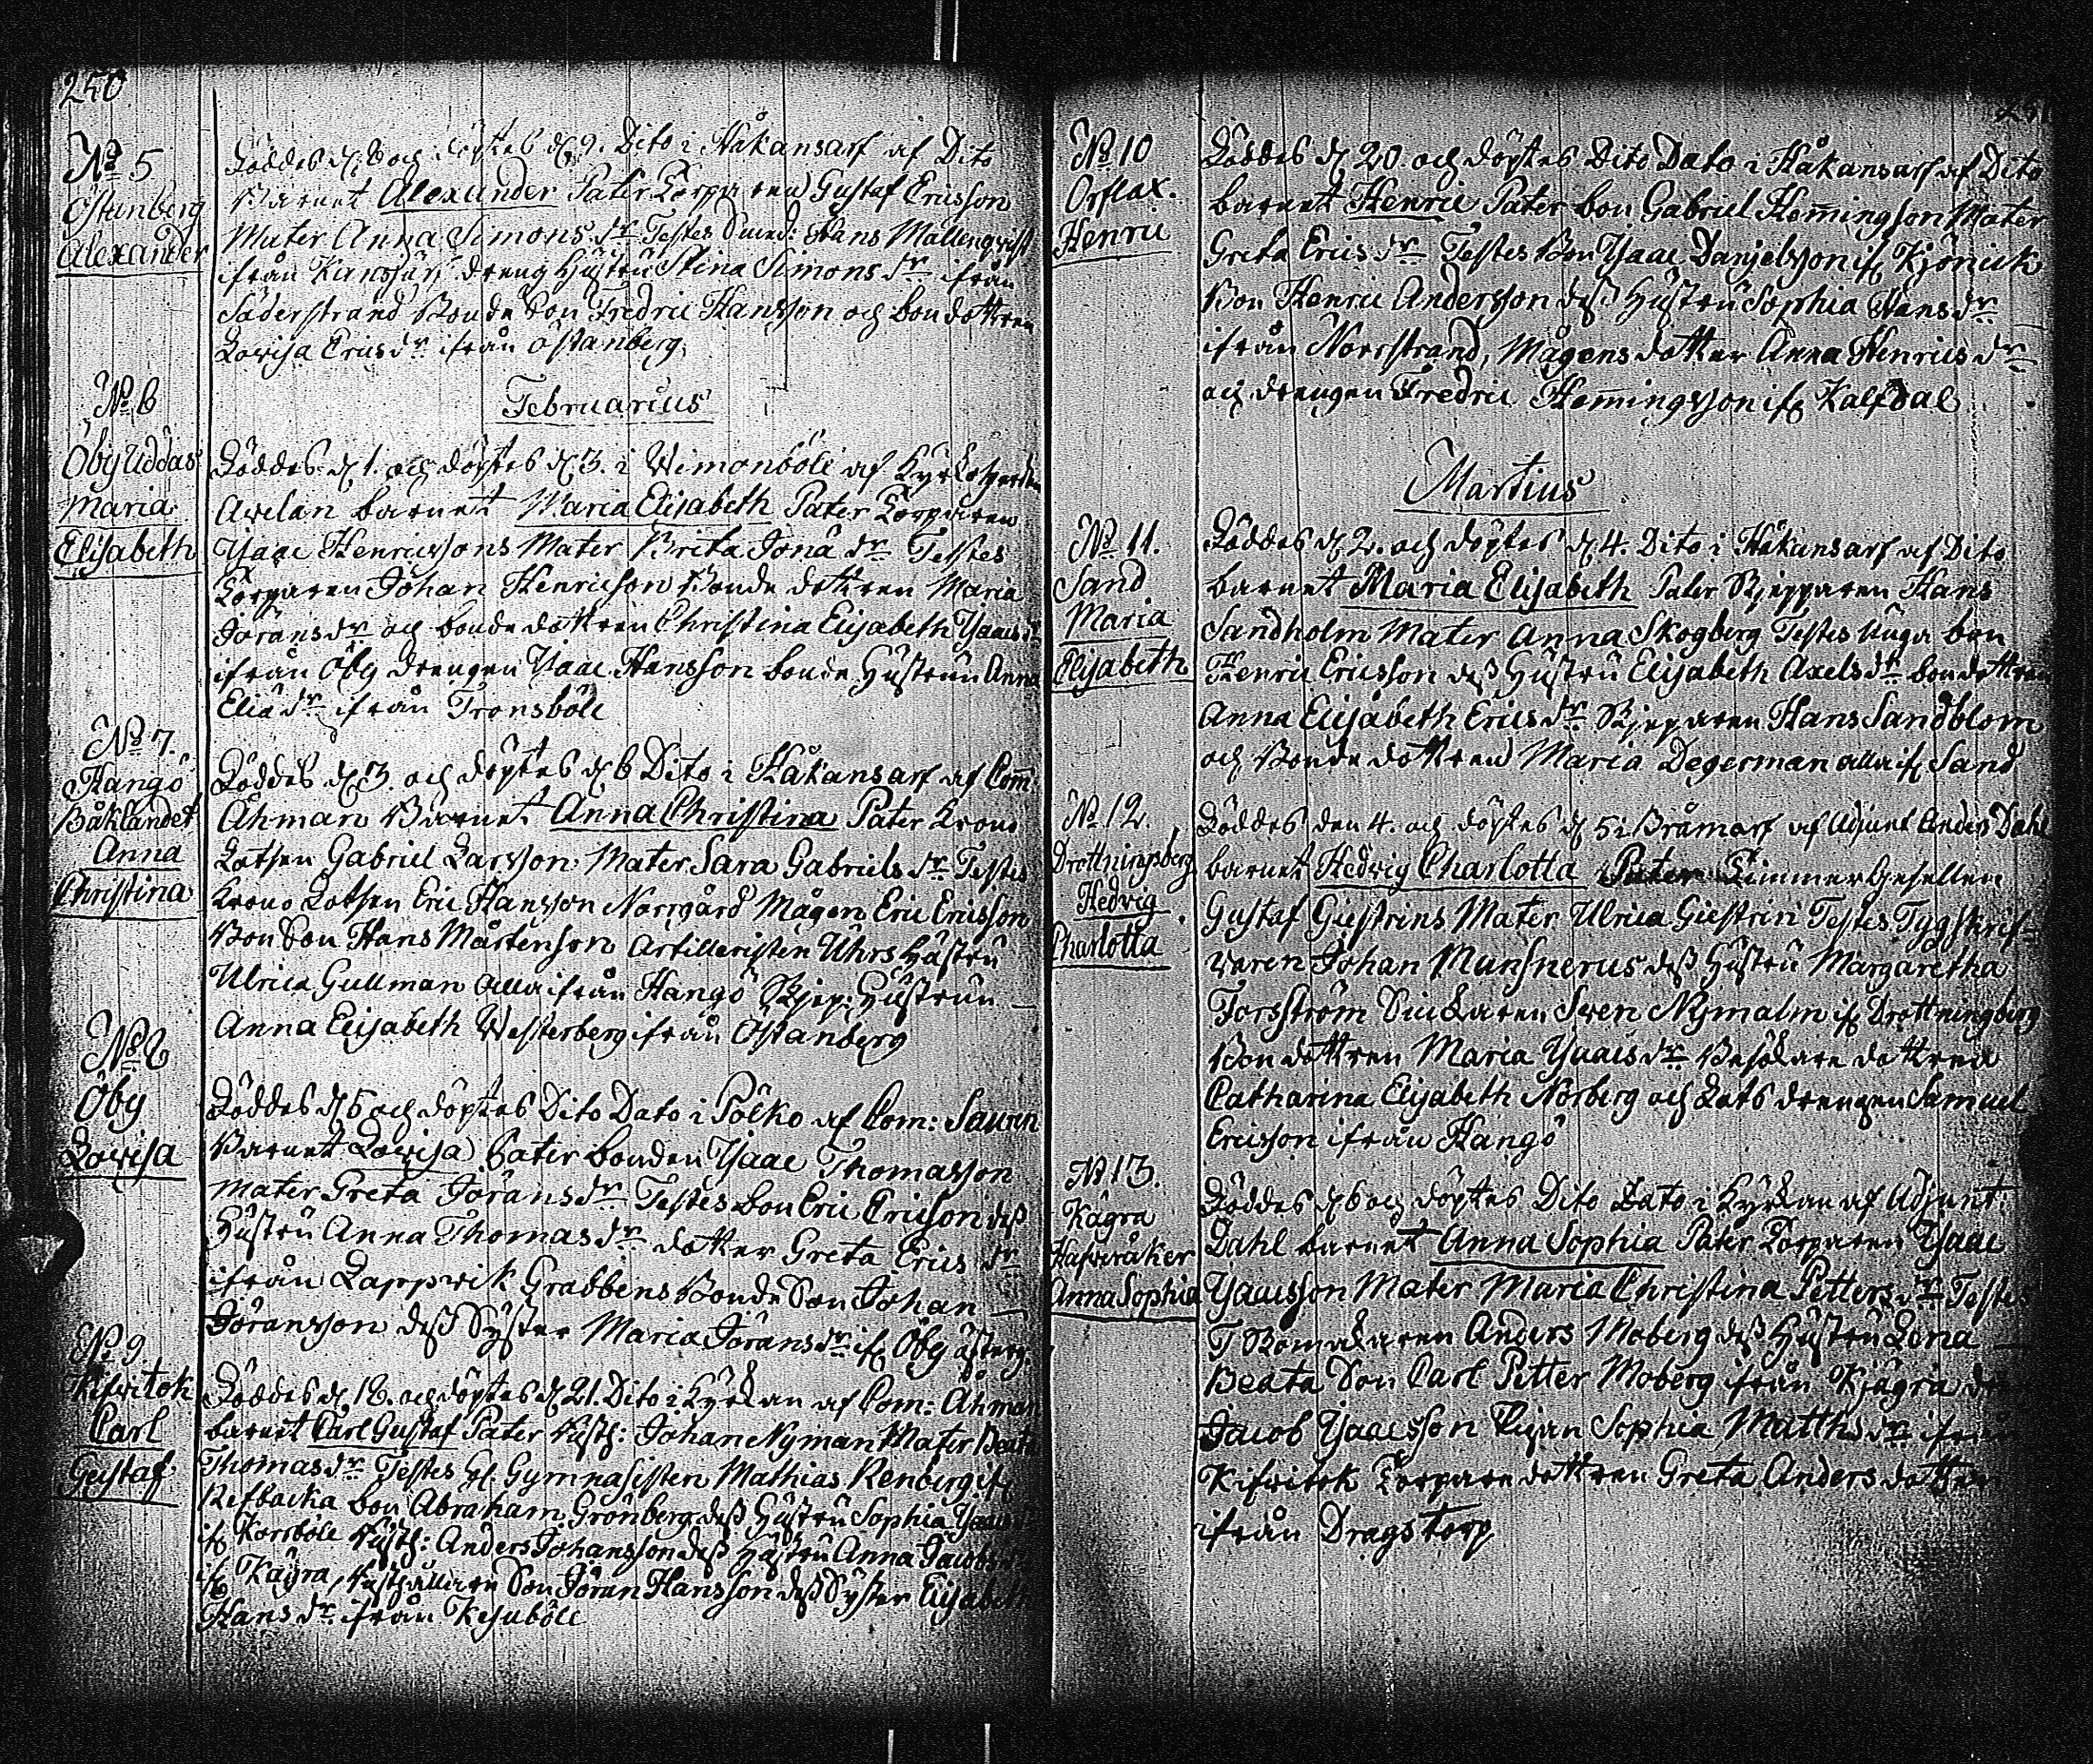 250
No 5
Östanberg
Alexander
Föddes d. 8 och döptes d. 9. Dito i Håkansarf af Dito
Barnet Alexander Pater Torparen Gustaf Ericsson
Mater Anna Simons dr Testes Hans Mallenqvist
ifrån dreng Hustru Stina Simons dr ifrån
Söderstrand Bonde Son Fredric Hansson och bondottren
Lovisa Erics dr ifrån östanberg.
Februarius
No 6
Öby Uddas
Maria
Elisabeth
Föddes d. 1. och döptes d. 3. i Wemonböle af Kyrkoherden
Avelan barnet Maria Elisabeth Pater Torparen
Isaac Henricssons Mater Brita Jona dr Testes
Torparen Johan Henricson Bonde dottren Maria
Jörans dr och bonde dottren Christina Elisabeth Isaacs dr
ifrån Öby drengen Isaac Hansson bonde Hustrun Anna
Elia dr ifrån Tronsböle
No 7.
Hangö
Båklandet
Anna
Christina
Föddes d. 3. och döptes d. 6 Dito i Håkansarf af Com:
Åhman Barnet Anna Christina Pater Krono
Lotsen Gabriel Larsson. Mater Sara Gabriels dr Testes
Krono Lotsen Eric Hansson Norrgård Mågen Eric Ericsson
Bon Son Hans Mårtenson Artilleristen Uhrs Hustru
Ulrica Gullman alla ifrån Hangö Skjep: Hustrun
Anna Elisabeth Westerberg ifrån Östanberg
No 8
Öby
Lovisa
Föddes d. 5 och döptes Dito Dato i Pölko af Com: Sauren
Barnet Lovisa Pater bonden Isaac Thomasson
Mater Greta Jörans dr Testes bon Eric Ericson dess
Hustru Anna Thomas dr dotter Greta Erics dr
ifrån Lappwik Grabbens Bonde Son Johan
Jöransson dess Syster Maria Jörans dr if. Öby
No 9
Kifvitok
Carl
Gustaf
Föddes d. 18. och döptes d. 21. Dito i Kyrkan af Com: Åhman
barnet Carl Gustaf Pater Rusth: Johan Nyman Mater Beata
Thomas dr Testes Gymnasisten Mathias Renberg if.
Refbacka bon Abraham Grönberg dess Hustru Sophia Isaacs
if. Korsböle Rusth: Anders Johansson dess Hustru Anna Jacobs
if. Kägra, Rusthållaren Son Jöran Hansson dess Syster Elisabeth
Hans dr ifrån Kesuböle
No 10
Orflax.
Henric
Föddes d. 20. och döptes Dito Dato i Håkansarf af Dito
barnet Henric Pater bon Gabriel Hemingson Mater
Greta Erics dr Testes Bon Isaac Danjelsson if.
Bon Henric Andersson dess Hustru Sophia Hans dr
ifrån Norrstrand, Mågens dotter Anna Henrics dr
och drengen Fredric Hemingsson if. Kalfdal
Martius
No 11.
Sand
Maria
Elisabeth
Föddes d. 2. och döptes d. 4. Dito i Håkansarf af Dito
barnet Maria Elisabeth Pater Skjepparen Hans
Sandholm Mater Anna Skogberg Testes Unga bon
Henric Ericsson dess Hustru Elisabeth Axels dr bondottren
Anna Elisabeth Erics dr Skjeparen Hans Sandblom
och Bonde dottren Maria Degerman alla if. Sand
No 12.
Drottningsberg
Hedvig
Charlotta
Föddes den 4. och döptes d. 5 i Bråmarf af Adjunct Anders Dahl
barnet Hedvig Charlotta Pater Timmer Gesellen
Gustaf Giestrins Mater Ulrica Giestrin Testes Tygskrif-
varen Johan Munsnerus dess Hustru Margaretha
Forsström Snickaren Sven Nymalm if. Drottningberg
Bon dottren Maria Isaacs dr Besökare dottren
Catharina Elisabeth Norberg och Lots drengen Samuel
Ericsson ifrån Hangö
No 13.
Kägra
Hafveråker
Anna Sophia
Föddes d. 6 och döptes Dito Dato i Kyrkan af Adjunct
Dahl barnet Anna Sophia Pater Torparen Isaac
Isaacsson Mater Maria Christina Petters dr Testes
Anders Moberg dess Hustru Lena
Beata Son Carl Petter Moberg ifrån Kjägra
Jacob Isaacsson Pigan Sophia Matths dr ifrån
Kifvitok Torpare dottren Greta Anders dotter
ifrån Dragstorp